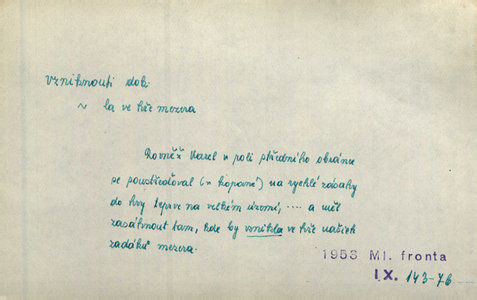 vzniknouti dok.
~ la ve hře mezera
Rovněž Karel v roli středního obránce
se soustřeďoval (v kopané) na rychlé zásahy
do hry teprve na velkém území, .... a měl
zasáhnout tam, kde by vznikla ve hře našich
zadáků mezera.
1953 Ml. fronta
IX. 143-76